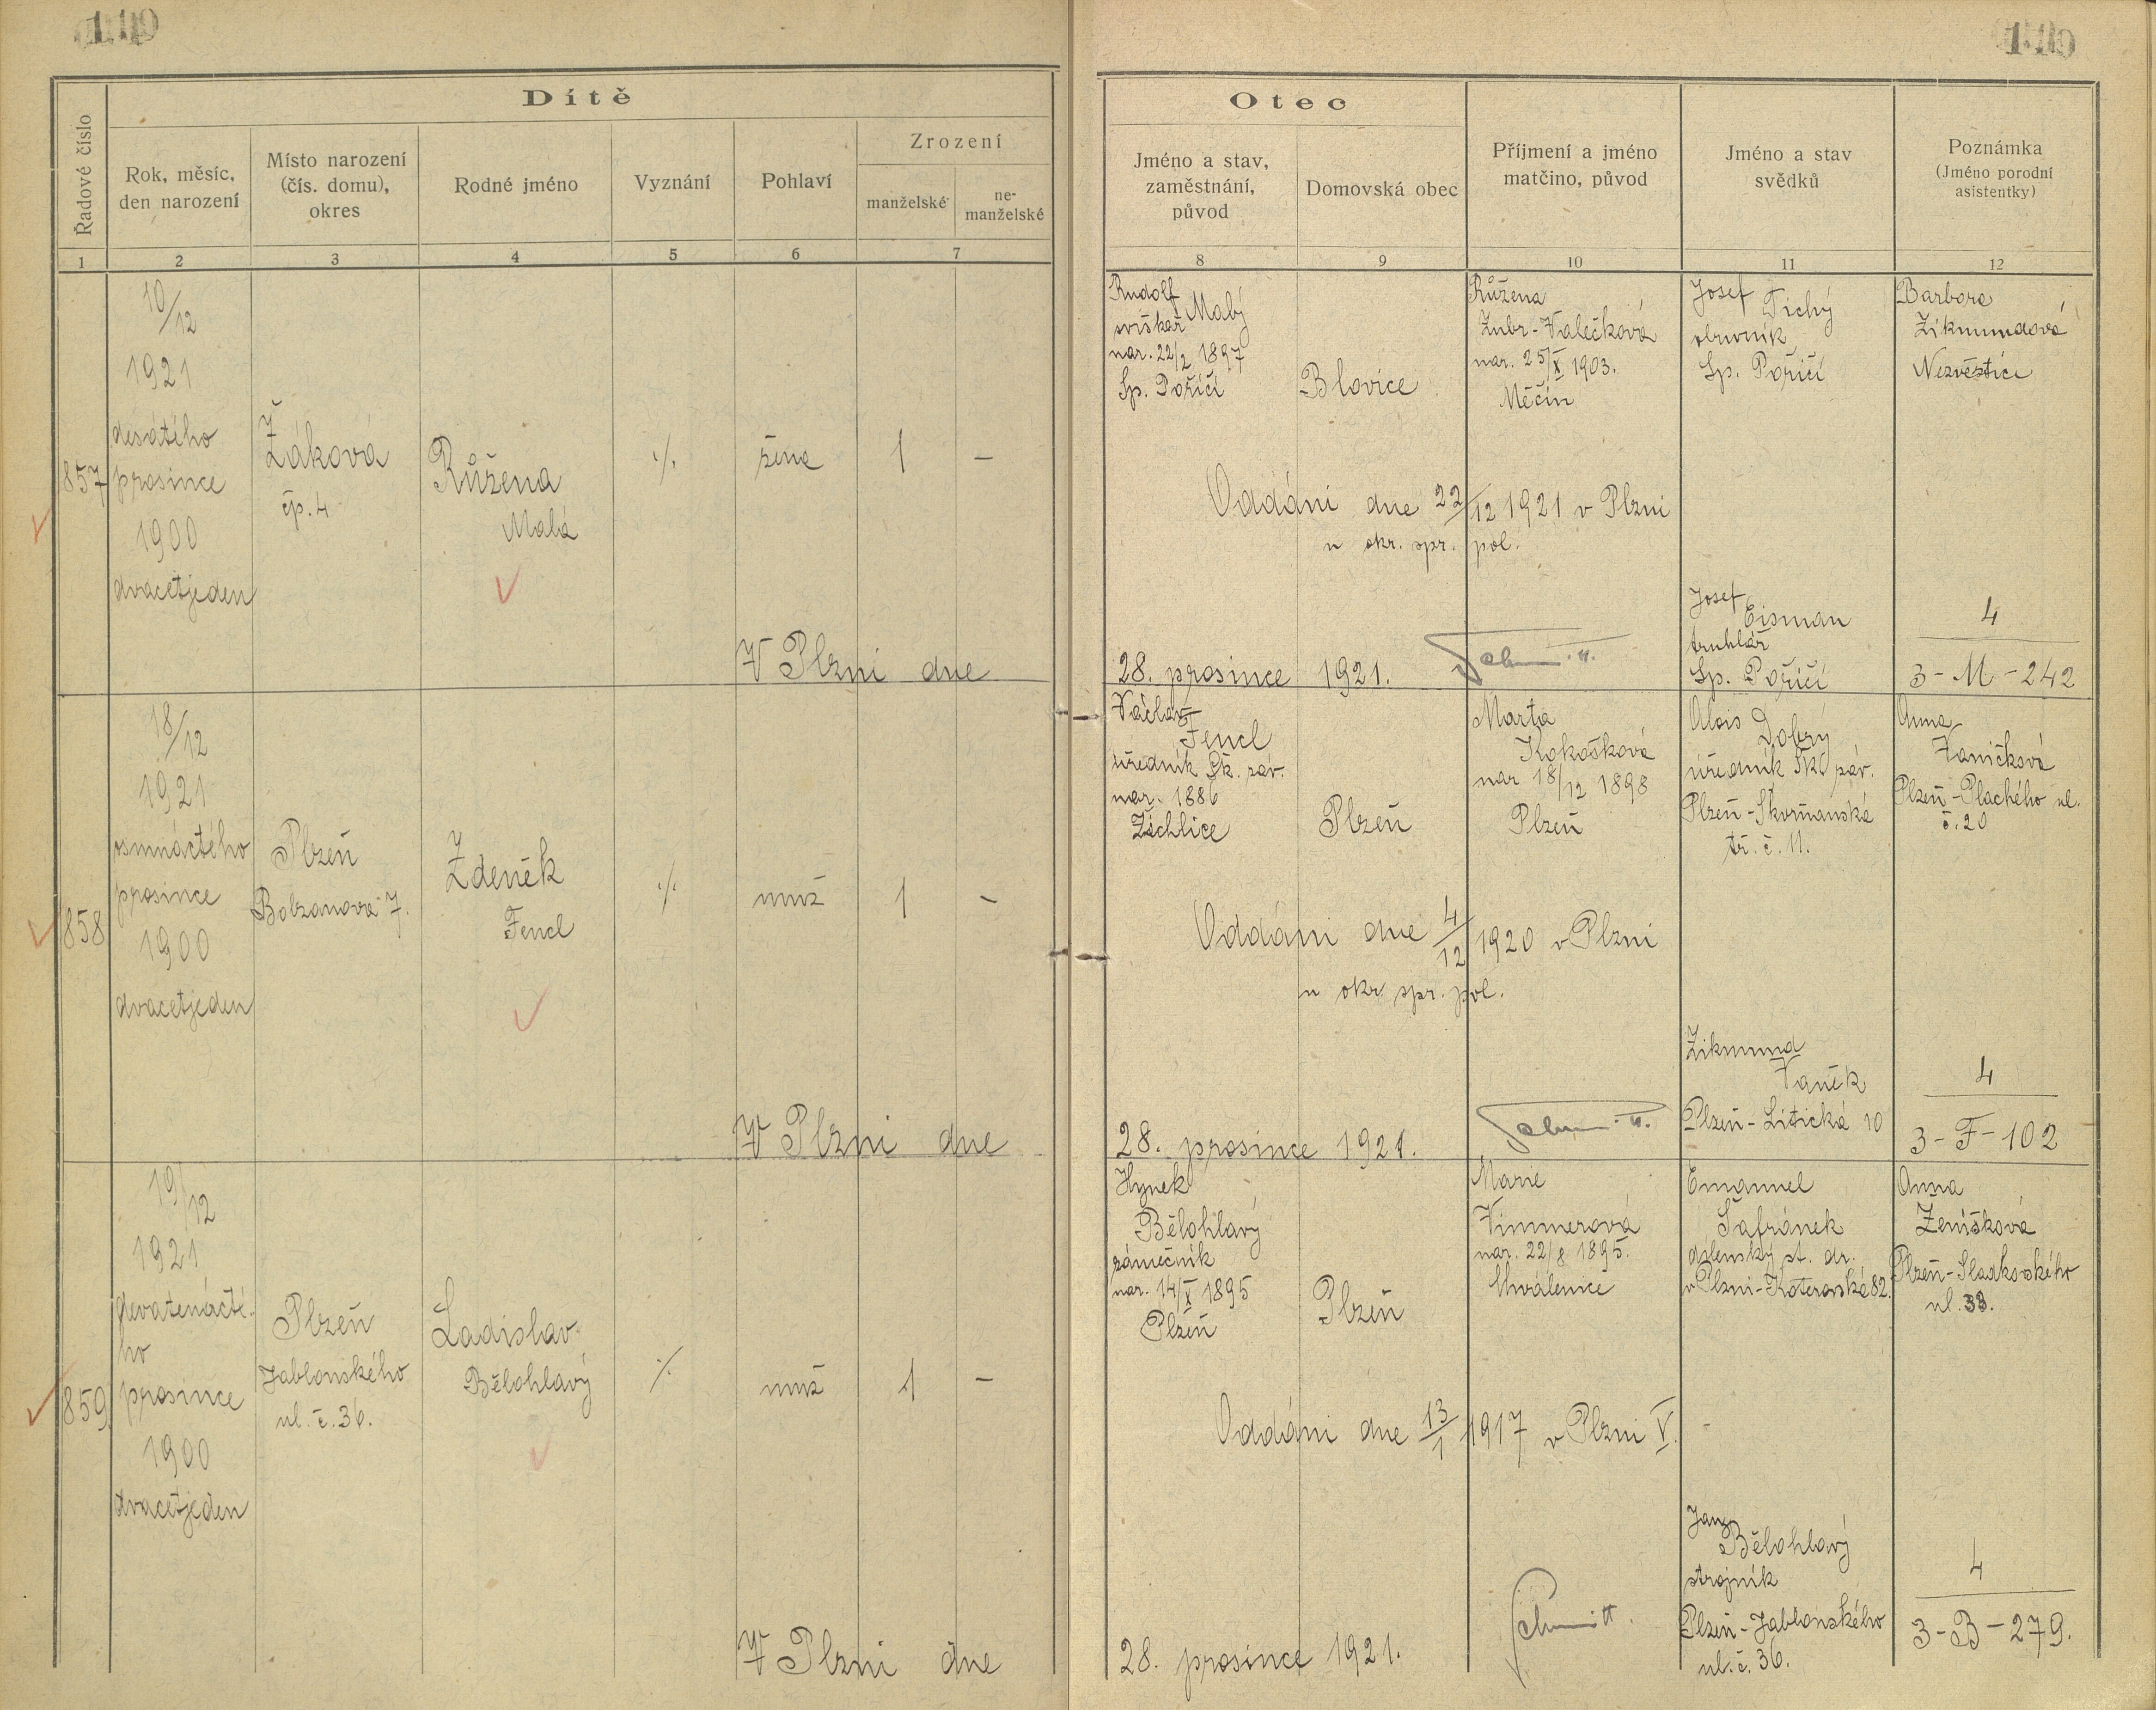 Dítě
Řadové číslo
Rok, měsíc,
den narození
Místo narození
(čís. domu),
okres
Rodné jméno
Vyznání
Pohlaví
Zrození
manželské
ne-
manželské
1 2 3 4 5 6 7
857
10/12
1921
desátého
prosince
1900
dvacetjeden
Žákova
čp. 4
Růžena
Malá
·/.
žena
1
–
V Plzni dne
858
18/12
1921
osmnáctého
prosince
1900
dvacetjeden
Plzeň
Bolzanova 7.
Zdeněk
Fencl
·/.
muž
1
–
V Plzni dne
859
19/12
1921
devatenácté-
ho
prosince
1900
dvacetjeden
Plzeň
Jablonského
ul. č. 36.
Ladislav
Bělohlavý
·/.
muž
1
–
V Plzni dne
Otec
Jméno a stav,
zaměstnání,
původ
Domovská obec
Příjmení a jméno
matčino, původ
Jméno a stav
svědků
Poznámka
(Jméno porodní
asistentky)
8 9 10 11 12
Rudolf
Malý
nar. 22/2 1897
Sp. Poříčí
Blovice
Růžena
Zubr-Valečková
nar. 25/X 1903.
Měčín
Josef Tichý
obuvník
Sp. Poříčí
Barbora
Zikmundová
Nezvěstice
Oddáni dne 22/12 1921 v Plzni
u okr. spr. pol.
Josef
Eisman
truhlář
Sp. Poříčí
4
3-M-242
28. prosince 1921.
Václav
Fencl
úředník Šk. záv.
nar. 1886
Žichlice
Plzeň
Marta
Kokošková
nar 18/12 1898
Plzeň
Alois Dobry
úředník Šk. záv.
Plzeň-Skvrňanská
tř. č. 11.
Anna
Vaničková
Plzeň-Plachého ul.
č. 20
Oddáni dne 4/12 1920 v Plzni
u okr. spr. pol.
Zikmund
Vaněk
Plzeň-Litická 10
4
3-F-102
28. prosince 1921.
Hynek
Bělohlavý
zámečník
nar. 14/X 1895
Plzeň
Plzeň
Marie
Vimmerová
nar. 22/8 1895.
Chválenice
Emanuel
Šafránek
dílenský st. dr.
v Plzni-Koterovská 82.
Anna
Ženíšková
Plzeň-Sladkovského
ul. 33.
Oddáni dne 13/1 1917 v Plzni V.
Jan
Bělohlavý
strojník
Plzeň-Jablonského
ul. č. 36.
4
3-B-279.
28. prosince 1921.
Schmitt.